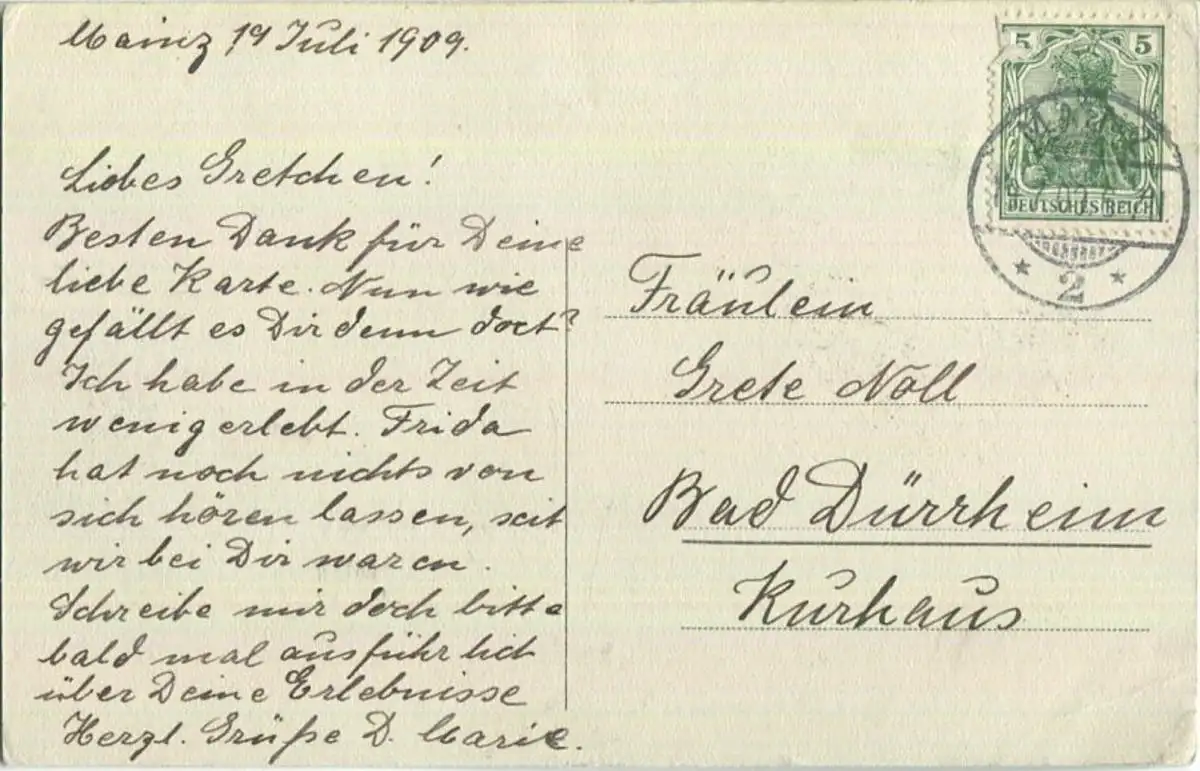 Mainz 19 Juli 1909.
Liebes Gretchen!
Besten Dank für Deine
liebe Karte. Nun wie
gefällt es Dir denn dort?
Ich habe in der Zeit
wenig erlebt. Frida
hat noch nichts von
sich hören lassen, seit
wir bei Dir waren.
Schreibe mir doch bitte
bald mal ausführlich
über Deine Erlebnisse
Herzl. Grüße D. Marie.
5 5
DEUTSCHES REICH
2
Fräulein
Grete Noll
Bad Dürrheim
Kurhaus